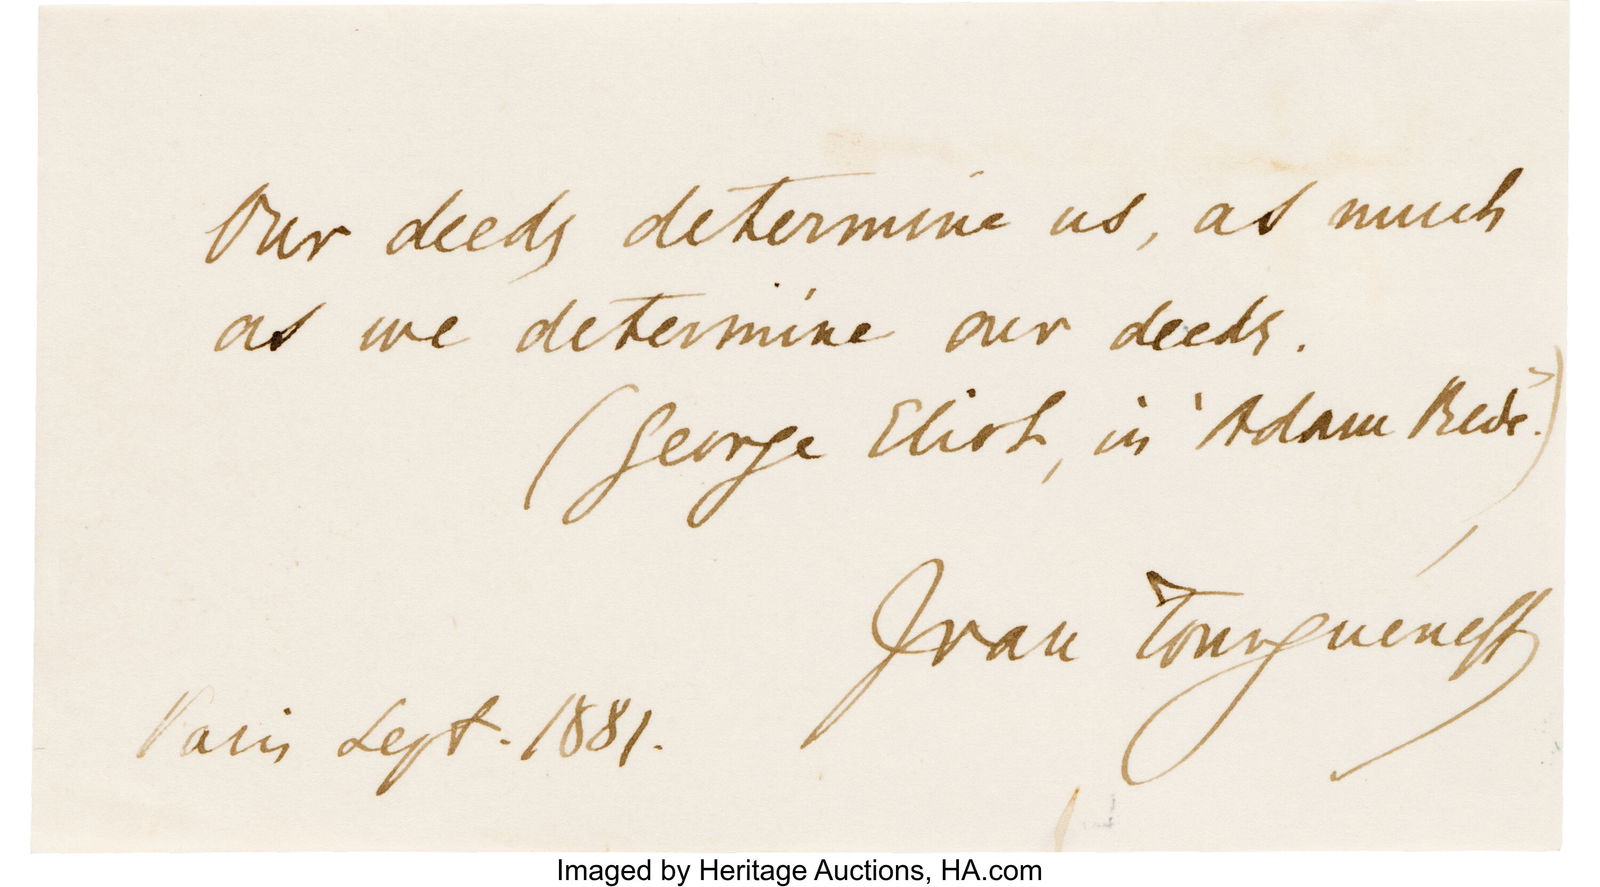 Our deeds determine us, as much
as we determine our deeds.
(George Eliot, in 'Adam Bede.')
Ivan Tourguéneff
Paris Sept. 1881.
Imaged by Heritage Auctions, HA.com